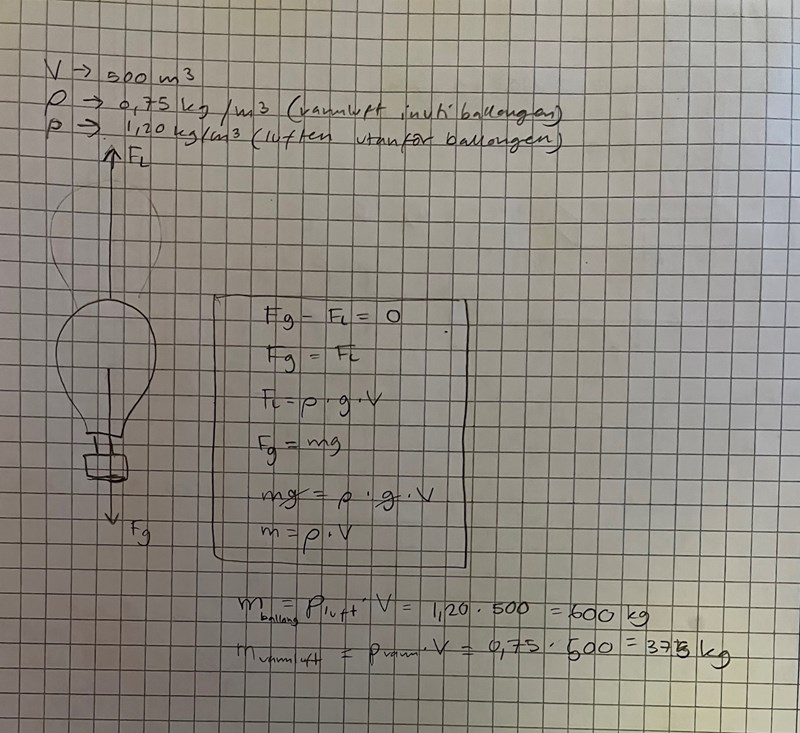 V → 500 m³
ρ → 0,75 kg/m³ (varmluft inuti ballongen)
ρ → 1,20 kg/m³ (luften utanför ballongen)
F_L
Fg - F_L = 0
Fg = F_L
F_L = ρ · g · V
Fg = mg
mg = ρ · g · V
m = ρ · V
Fg
m_ballong = ρ_luft · V = 1,20 · 500 = 600 kg
m_varmluft = ρ_varm · V = 0,75 · 500 = 375 kg